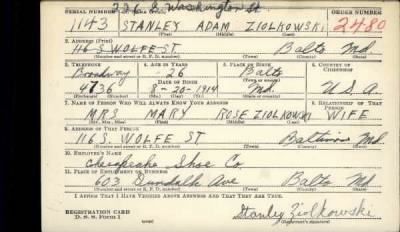 226 S. Washington St
SERIAL NUMBER 1. NAME (Print) ORDER NUMBER
1143 STANLEY ADAM ZIOLKOWSKI 2480
(First) (Middle) (Last)
2. ADDRESS (Print)
116 S. WOLFE ST Balto Md.
(Number and street or R. F. D. number) (Town) (County) (State)
3. TELEPHONE 4. AGE IN YEARS 5. PLACE OF BIRTH 6. COUNTRY OF CITIZENSHIP
Broadway 26 Balto
(Town or county)
DATE OF BIRTH
4736 8-20-1914 Md. U.S.A.
(Exchange) (Number) (Mo.) (Day) (Yr.) (State or country)
7. NAME OF PERSON WHO WILL ALWAYS KNOW YOUR ADDRESS 8. RELATIONSHIP OF THAT PERSON
MRS MARY ROSE ZIOLKOWSKI WIFE
(Mr., Mrs., Miss) (First) (Middle) (Last)
9. ADDRESS OF THAT PERSON
116 S. WOLFE ST Baltimore Md
(Number and street or R. F. D. number) (Town) (County) (State)
10. EMPLOYER'S NAME
Chesapeake Shoe Co
11. PLACE OF EMPLOYMENT OR BUSINESS
603 Dundalk Ave Balto Md
(Number and street or R. F. D. number) (Town) (County) (State)
I AFFIRM THAT I HAVE VERIFIED ABOVE ANSWERS AND THAT THEY ARE TRUE.
REGISTRATION CARD
D. S. S. Form 1
Stanley Ziolkowski
(Registrant's signature)